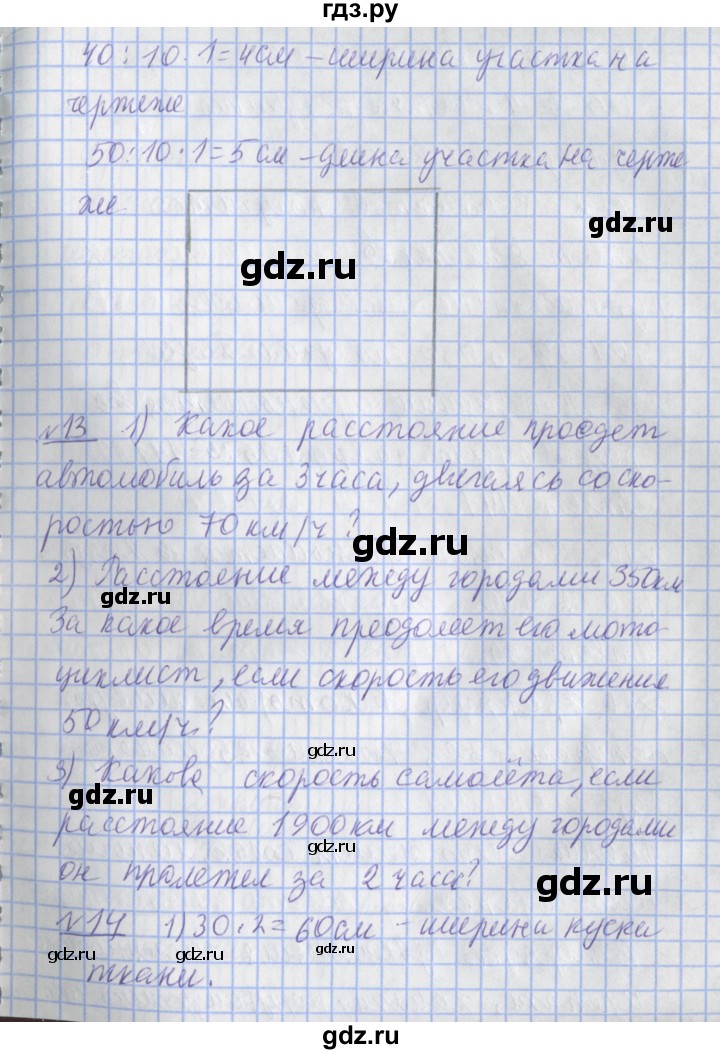 гдз.ру
40 : 10 · 1 = 4 см – ширина участка на
чертеже
50 : 10 · 1 = 5 см – длина участка на черте
же
gdz.ru
gdz.ru
№13 1) Какое расстояние проедет
автомобиль за 3 часа, двигаясь со ско-
ростью 70 км/ч?
gdz.ru
2) Расстояние между городами 350 км
gdz.ru
За какое время преодолеет его мото-
циклист, если скорость его движения
50 км/ч?
gdz.ru
3) Какова скорость самолёта, если
gdz.ru
расстояние 1900 км между городами
gdz.ru
он пролетел за 2 часа?
gdz.ru
№14 1) 30 · 2 = 60 см – ширина куска
gdz.ru
ткани.
gdz.ru
gdz.ru